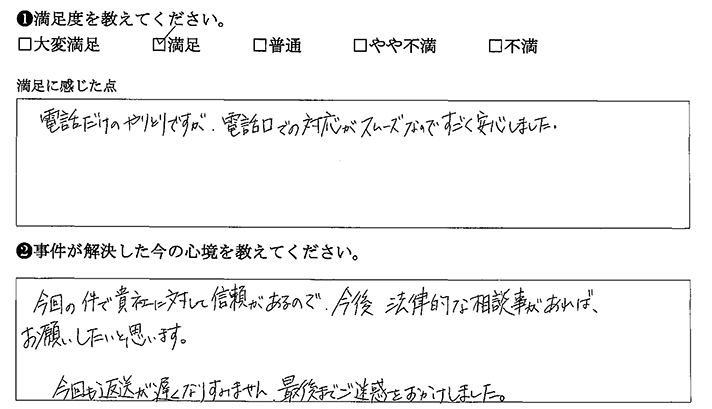 ❶満足度を教えてください。
□大変満足 ☑満足 □普通 □やや不満 □不満
満足に感じた点
電話だけのやりとりですが、電話口での対応がスムーズなのですごく安心しました。
❷事件が解決した今の心境を教えてください。
今回の件で貴社に対して信頼があるので、今後 法律的な相談事があれば、
お願いしたいと思います。
今回も返送が遅くなりすみません 最後までご迷惑をおかけしました。